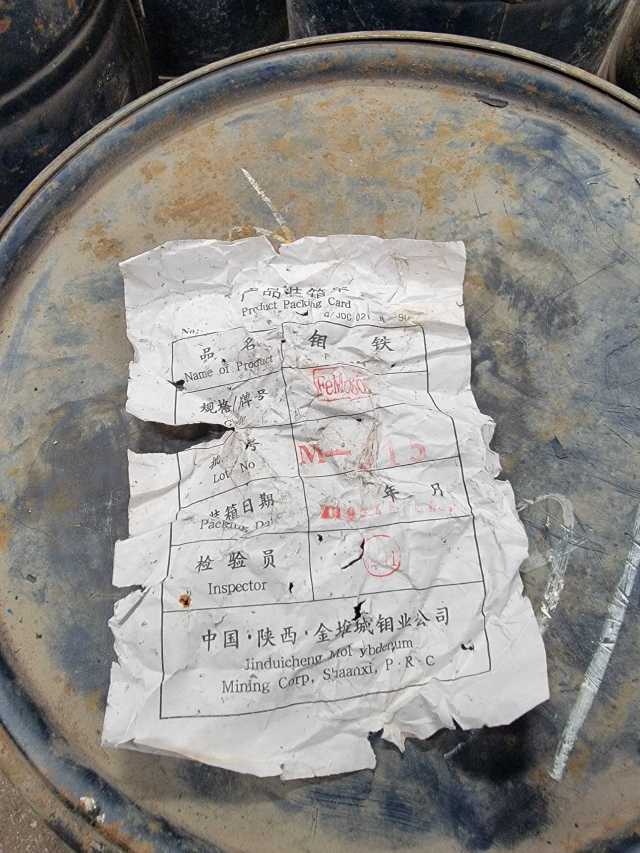 产品装箱卡
Product Packing Card
No:
品 名 钼 铁
Name of Product
规格/牌号
批 号 M—
Lot No
装箱日期 年 月
Packing
检验员
Inspector
中国·陕西·金堆城钼业公司
Jinduicheng Molybdenum
Mining Corp, Shaanxi, P·R·C